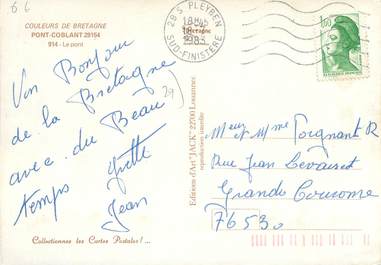 COULEURS DE BRETAGNE
PONT-COBLANT 29154
914 - Le pont
Un Bonjour
de la Bretagne
avec du Beau
temps Yvette
Jean
Collectionnez les Cartes Postales ! ...
Editions d'Art "JACK" 22700 Louannec
reproduction interdite
Bretagne
29 S PLEYBEN
1985
SUD-FINISTERE
1,80
Meur et Mme Poignant R
Rue Jean
Grande Couronne
76530
29